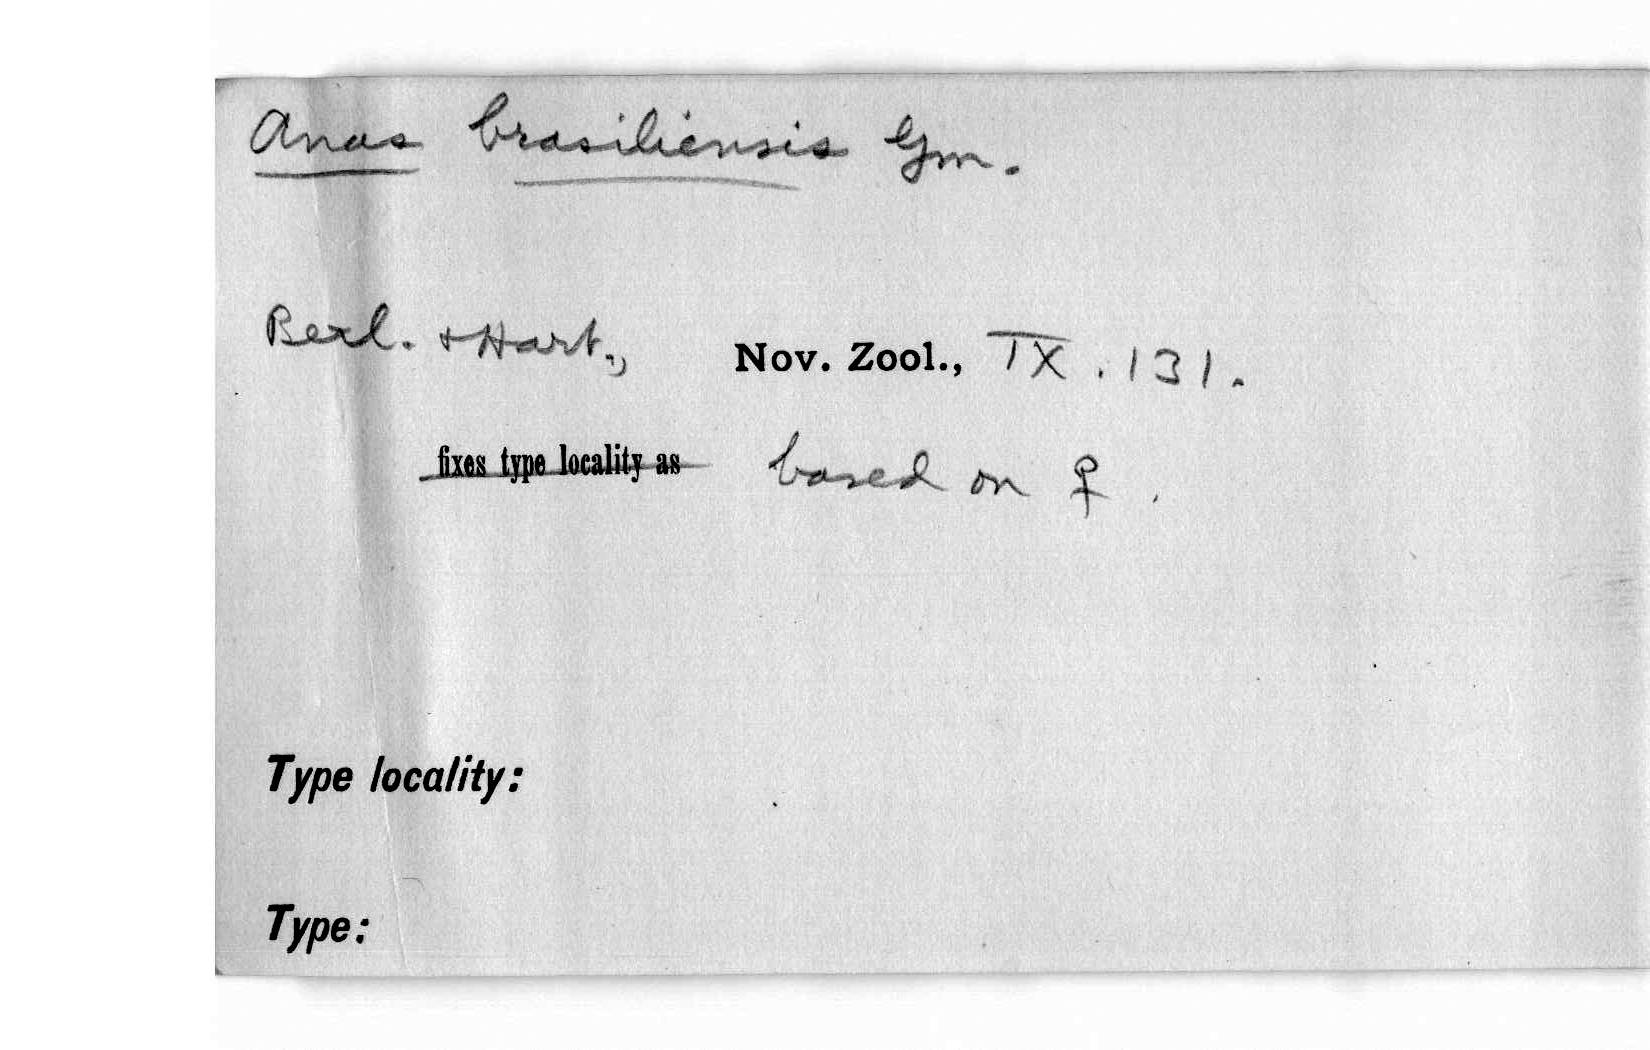 Anas brasiliensis Gm.
Berl. + Hart., Nov. Zool., IX. 131.
fixes type locality as based on ♀.
Type locality:
Type: